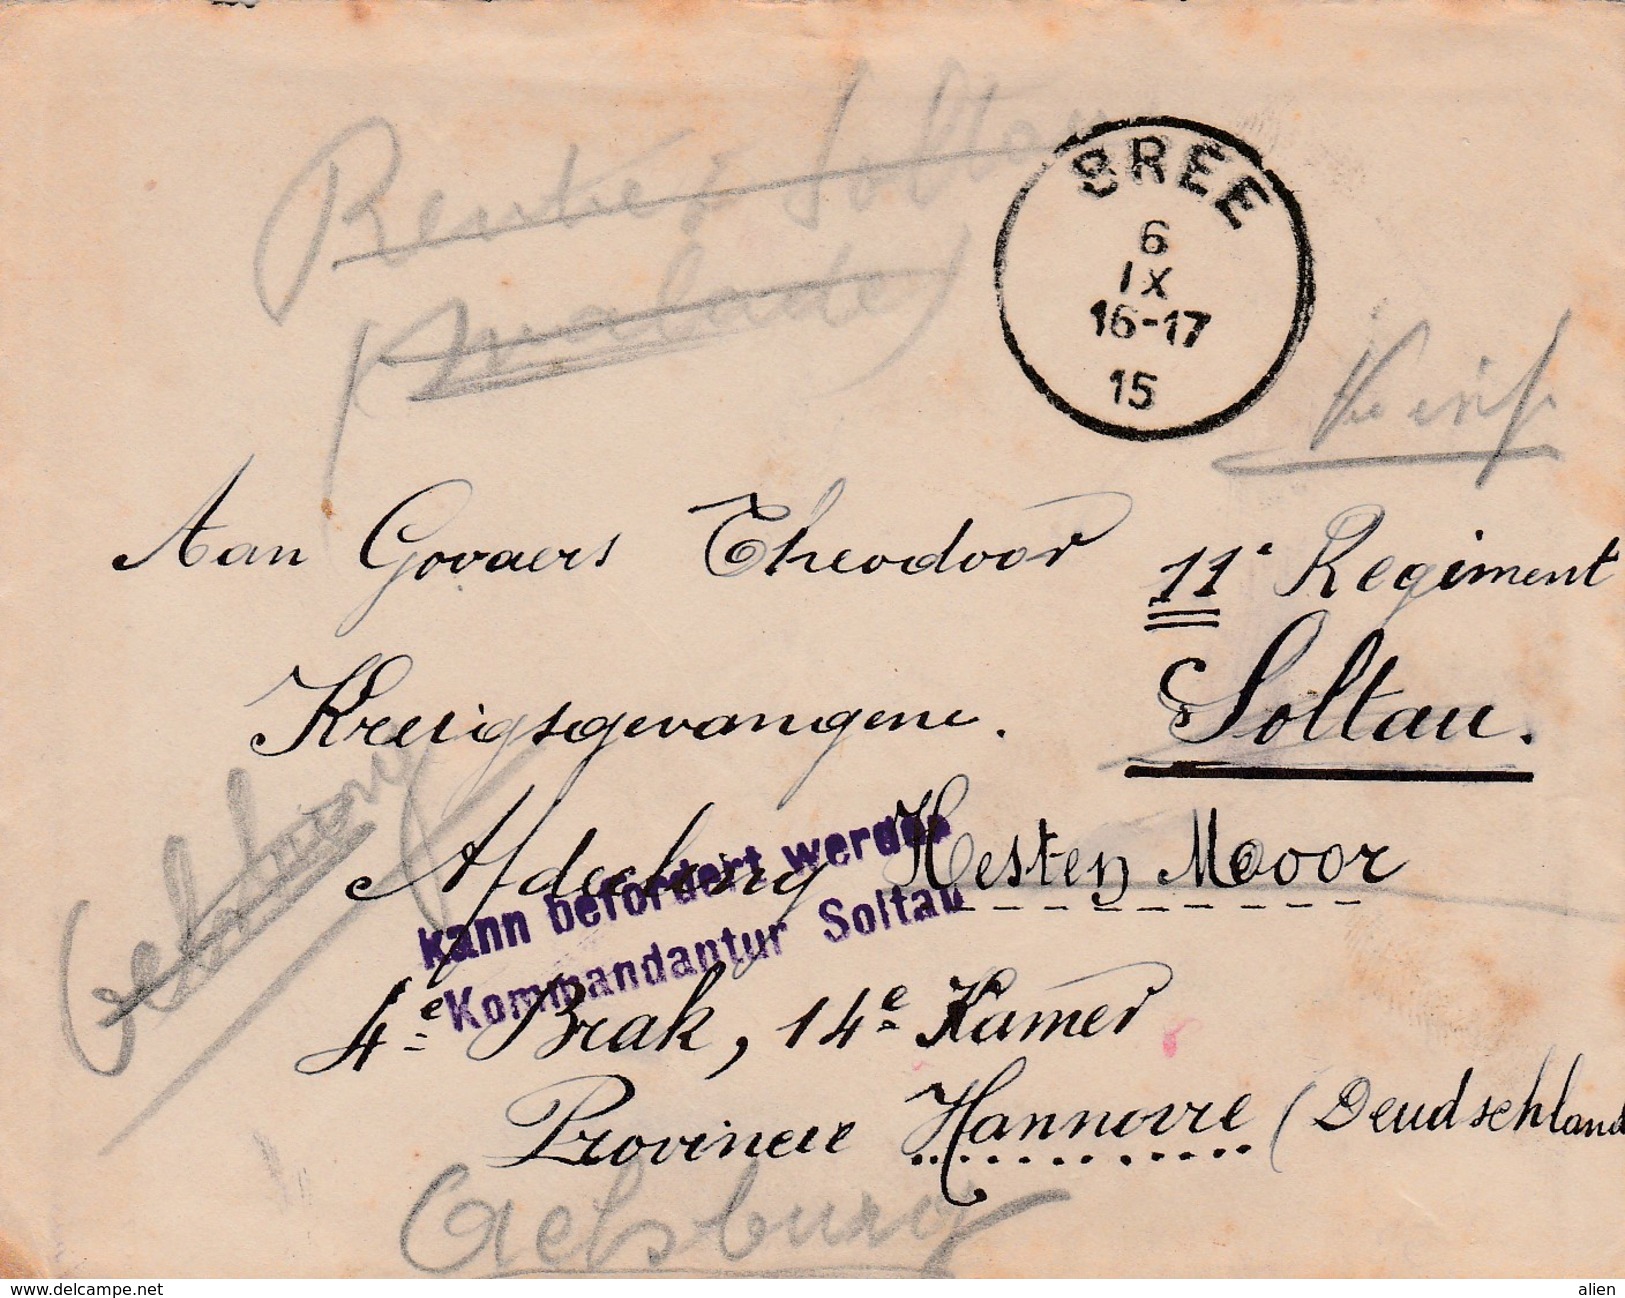 Rentré Soltau
(malade)
BREE
6
IX
16-17
15
Aan Govaers Theodoor 11e Regiment
Kreuigsgevangene. Soltau.
Afdeeling Hesten Mooor
kann befördert werden
Kommandantur Soltau
4e Brak, 14e Kamer
Provincie Hannovre (Deudschland
delcampe.net
alien